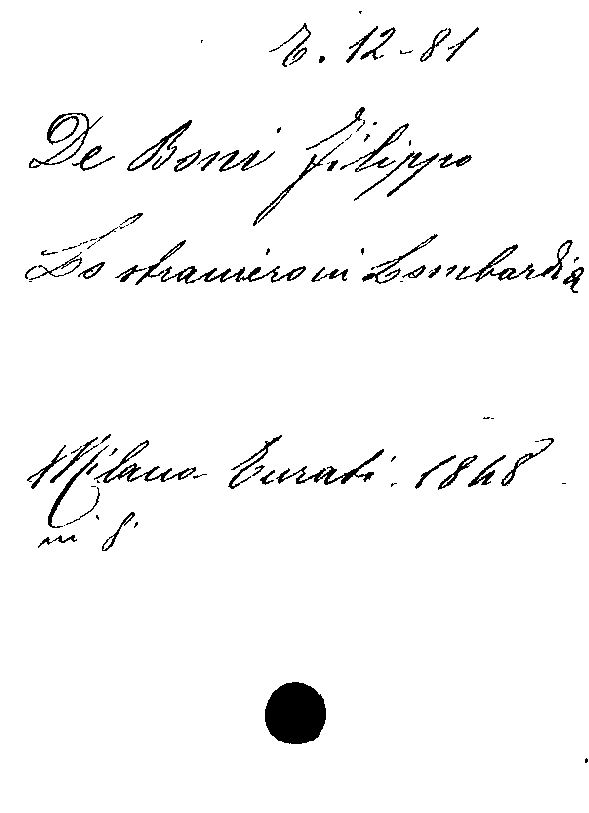 E. 12-81
De Boni Filippo
Lo straniero in Lombardia
Milano Turati. 1848
in 8.